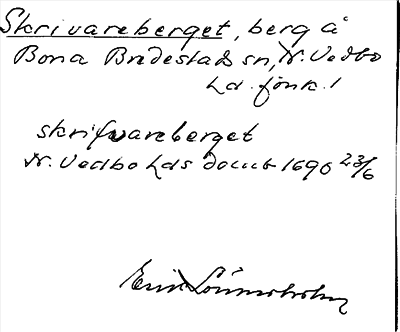 Skrivareberget, berg å
Bona Bredestads sn, N. Vedbo
hd. Jönk. l
skrifvareberget
N. Vedbo hds domb 1690 23/6
Erik